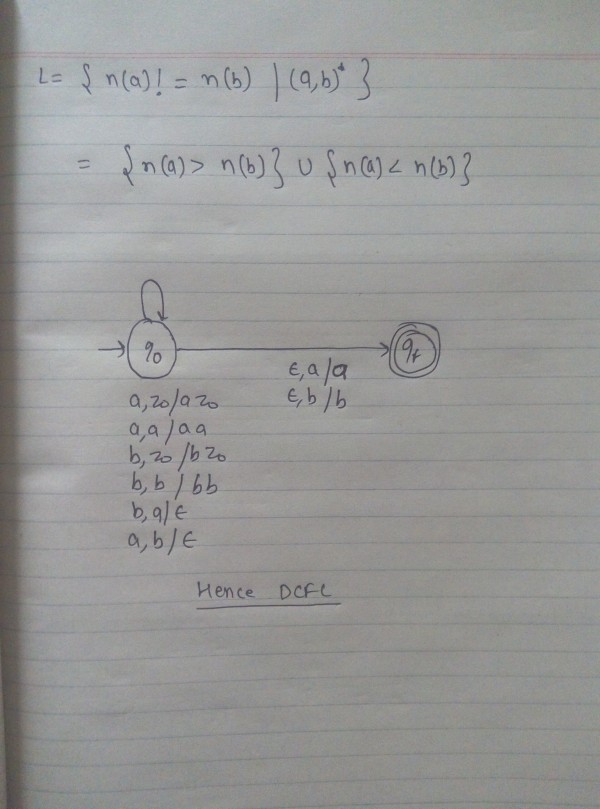 L = { n(a)! = n(b) | (a,b)* }
= { n(a) > n(b) } ∪ { n(a) < n(b) }
q0
qf
ϵ, a / a
ϵ, b / b
a, z0 / a z0
a, a / aa
b, z0 / b z0
b, b / bb
b, a / ϵ
a, b / ϵ
Hence DCFL